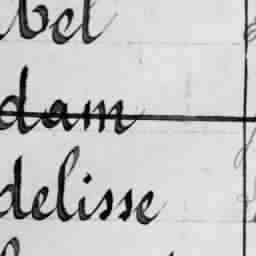 bel
dam
delisse